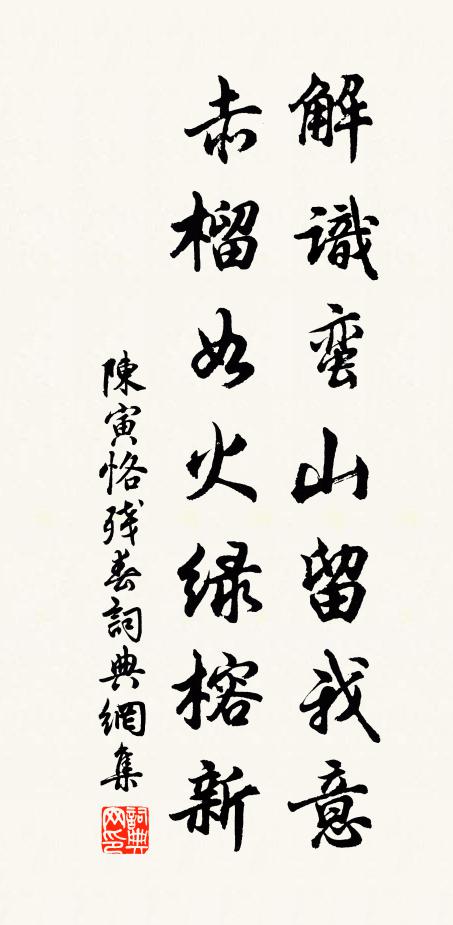 解識蛮山留我意
赤榴如火緑榕新
陳寅恪残春詞典網集
詞典网印